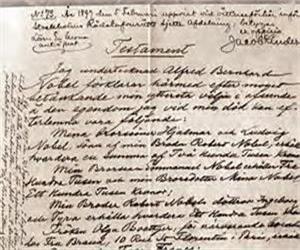 No 73. År 1897 den 5 Februari uppvist vid vittnesförhör inför
Stockholms Rådstufvurätts sjette Afdelning, betygar
Testament
Jag undertecknad Alfred Bernhard
Nobel förklarar härmed efter moget
betänkande min yttersta vilja i afseende
egendom jag vid min död kan ef-
terlemna vara följande:
Mina Brorsöner Hjalmar och Ludvig
Nobel, söner af min Broder Robert Nobel, erhålla
hvardera en summa af Två Hundra Tusen Kronor
Min Brorsson Emmanuel Nobel erhåller Tre
Hundra Tusen och min Brorsdotter Mina Nobel
Ett Hundra Tusen Kronor;
Min Broder Robert Nobels döttrar Ingeborg
och Tyra erhålla hvardera Ett Hundra Tusen
Fröken Olga Boettger, för närvarande boende
Fru Brand, 10 Rue St Florentin, Paris,